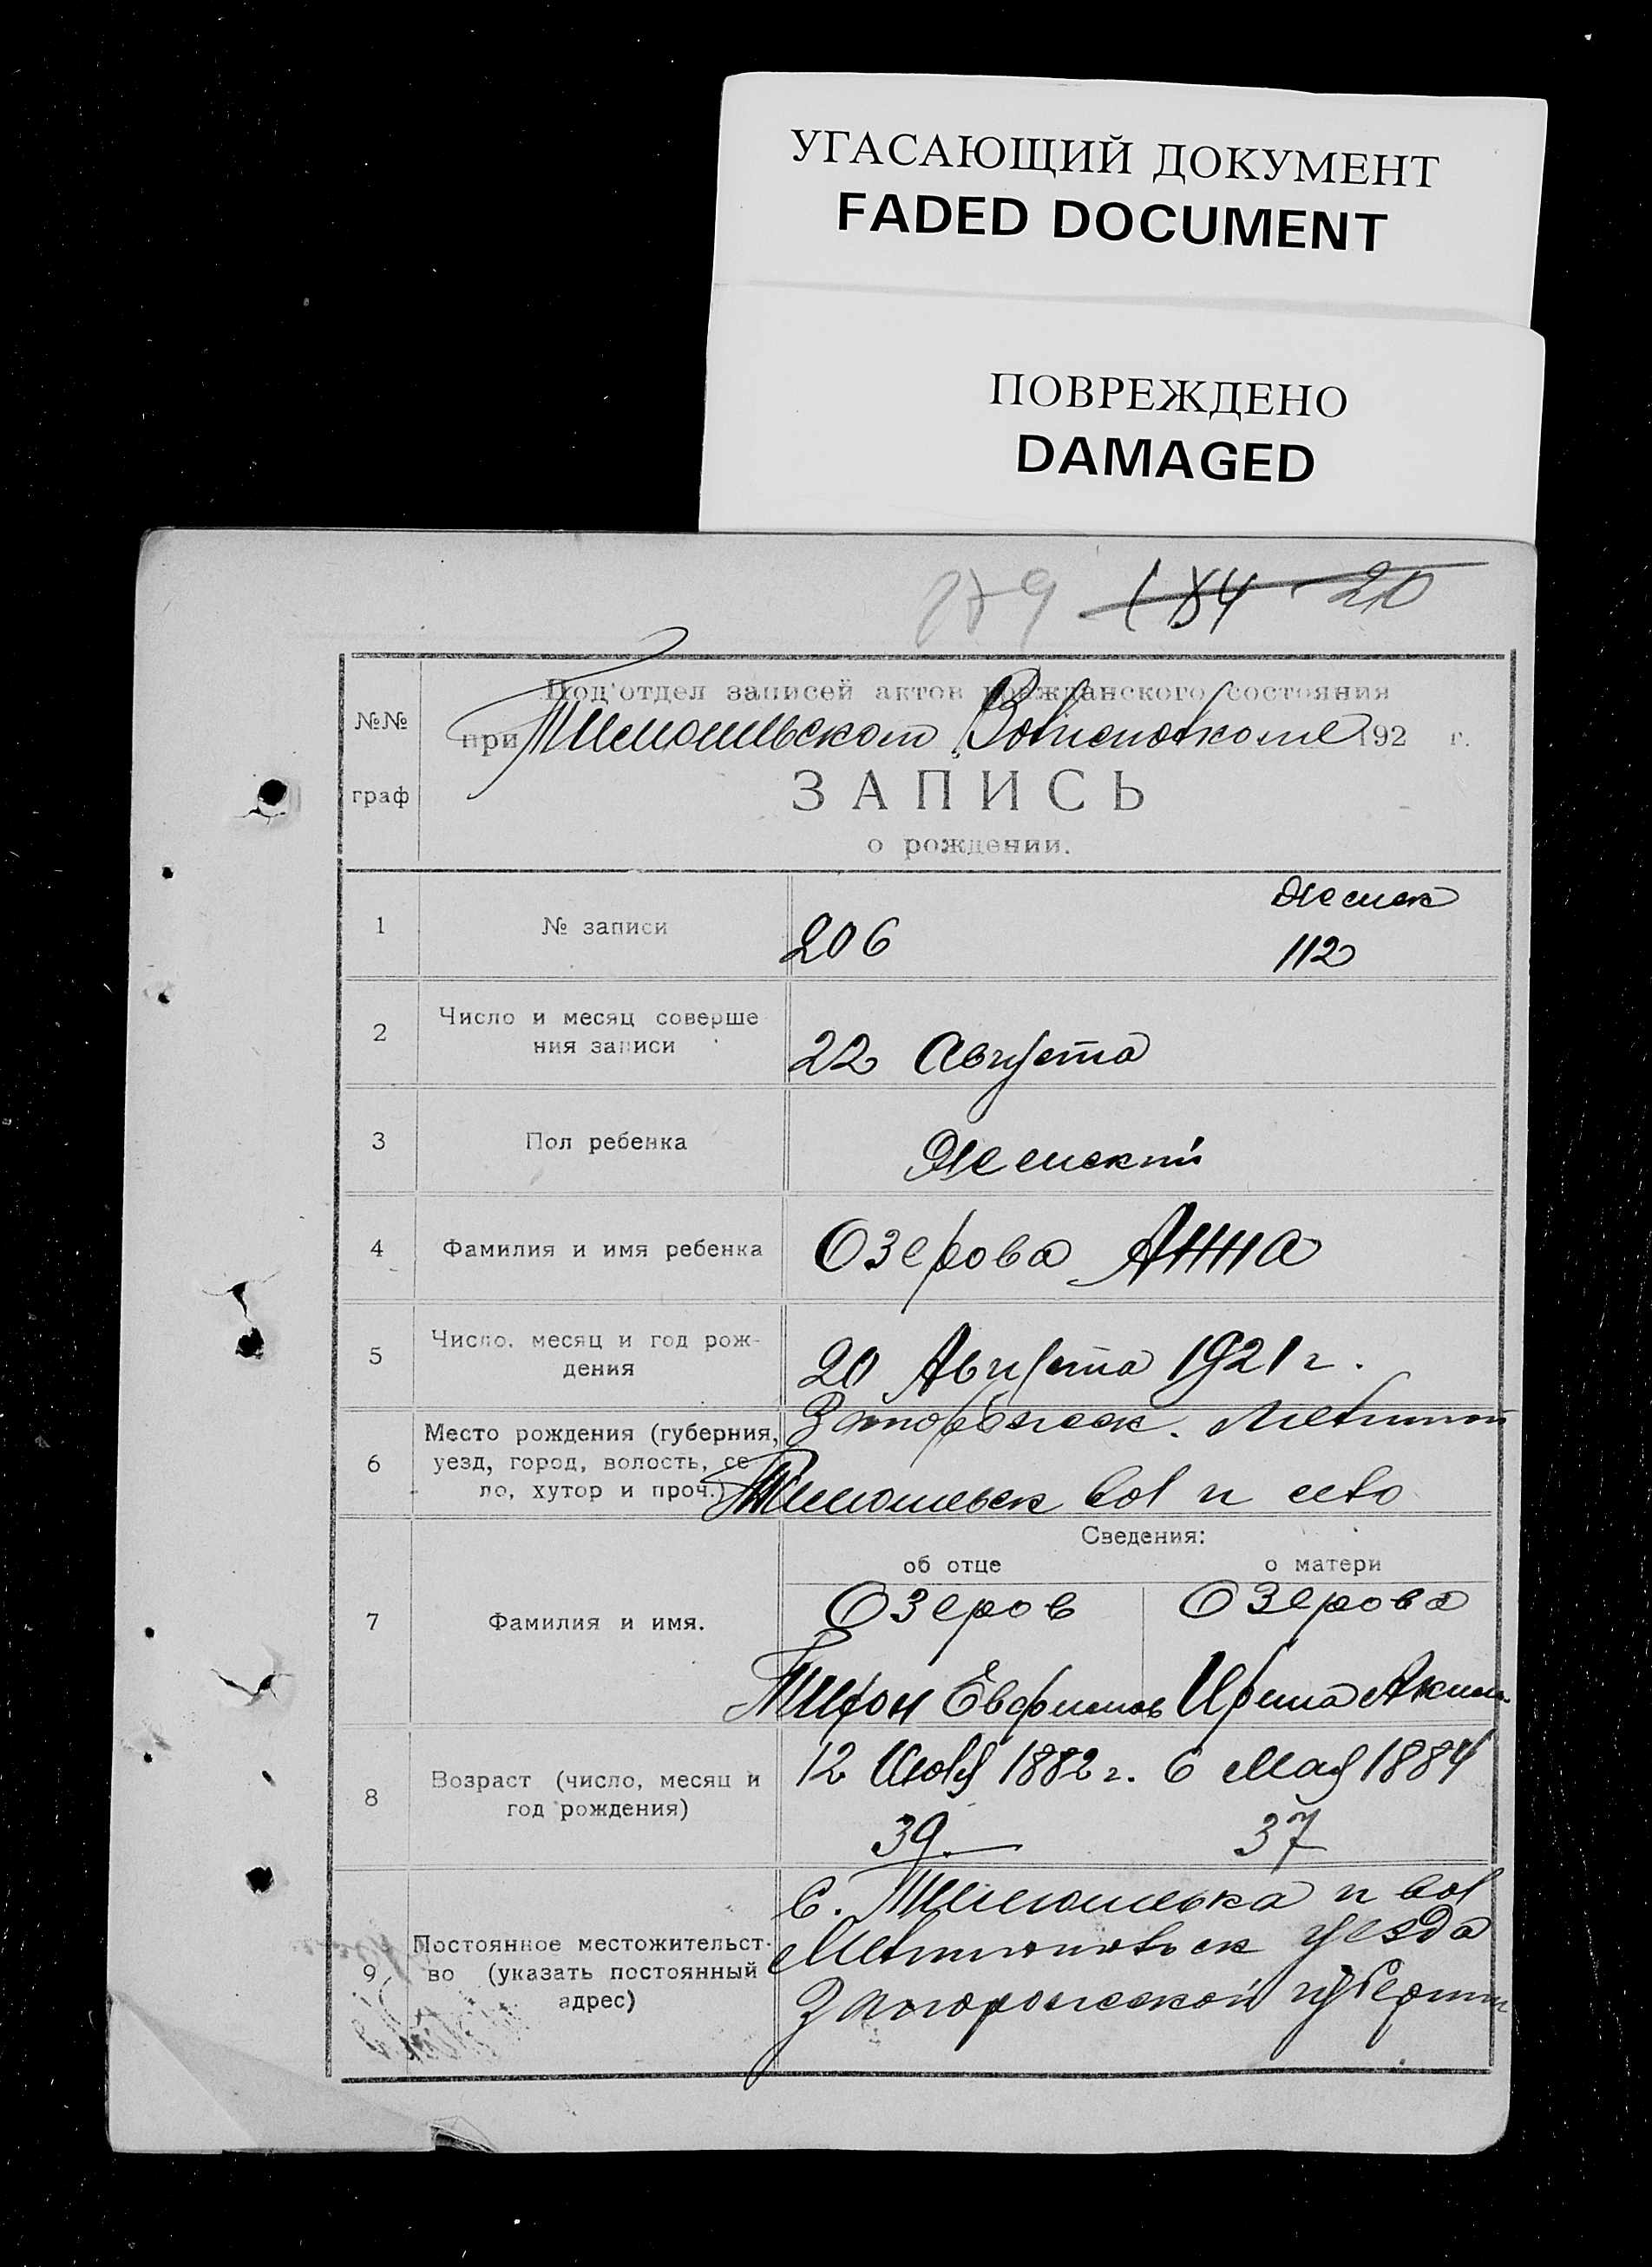 УГАСАЮЩИЙ ДОКУМЕНТ
FADED DOCUMENT
ПОВРЕЖДЕНО
DAMAGED
184 20
№№
граф
Под'отдел записей актов гражданского состояния
при Тимошевском Волисполкоме 192 г.
ЗАПИСЬ
о рождении.
1 № записи 206 Женск
112
2 Число и месяц соверше
ния записи
22 Августа
3 Пол ребенка Женский
4 Фамилия и имя ребенка Озерова Анна
5 Число, месяц и год рож-
дения
20 Августа 1921 г.
6 Место рождения (губерния,
уезд, город, волость, се
ло, хутор и проч.)
Запорожск.
Тимошевск вол и село
Сведения:
об отце о матери
7 Фамилия и имя.
Озеров Озерова
Тифон Евфимов Ирина Аким
8 Возраст (число, месяц и
год рождения)
12 1882 г. 6 Мая 1884
39 37
9 Постоянное местожительст-
во (указать постоянный
адрес)
С. Тимошевка и вол
уезда
Запорожской губернии